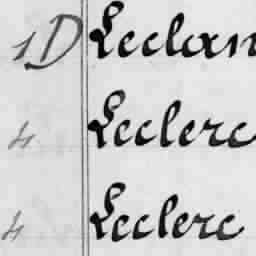 1D Leclan
4 Leclerc
4 Leclerc